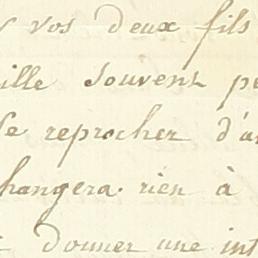 vos deux fils
ille souvent pe
se reprocher d'a
hangera rien à
donner une int